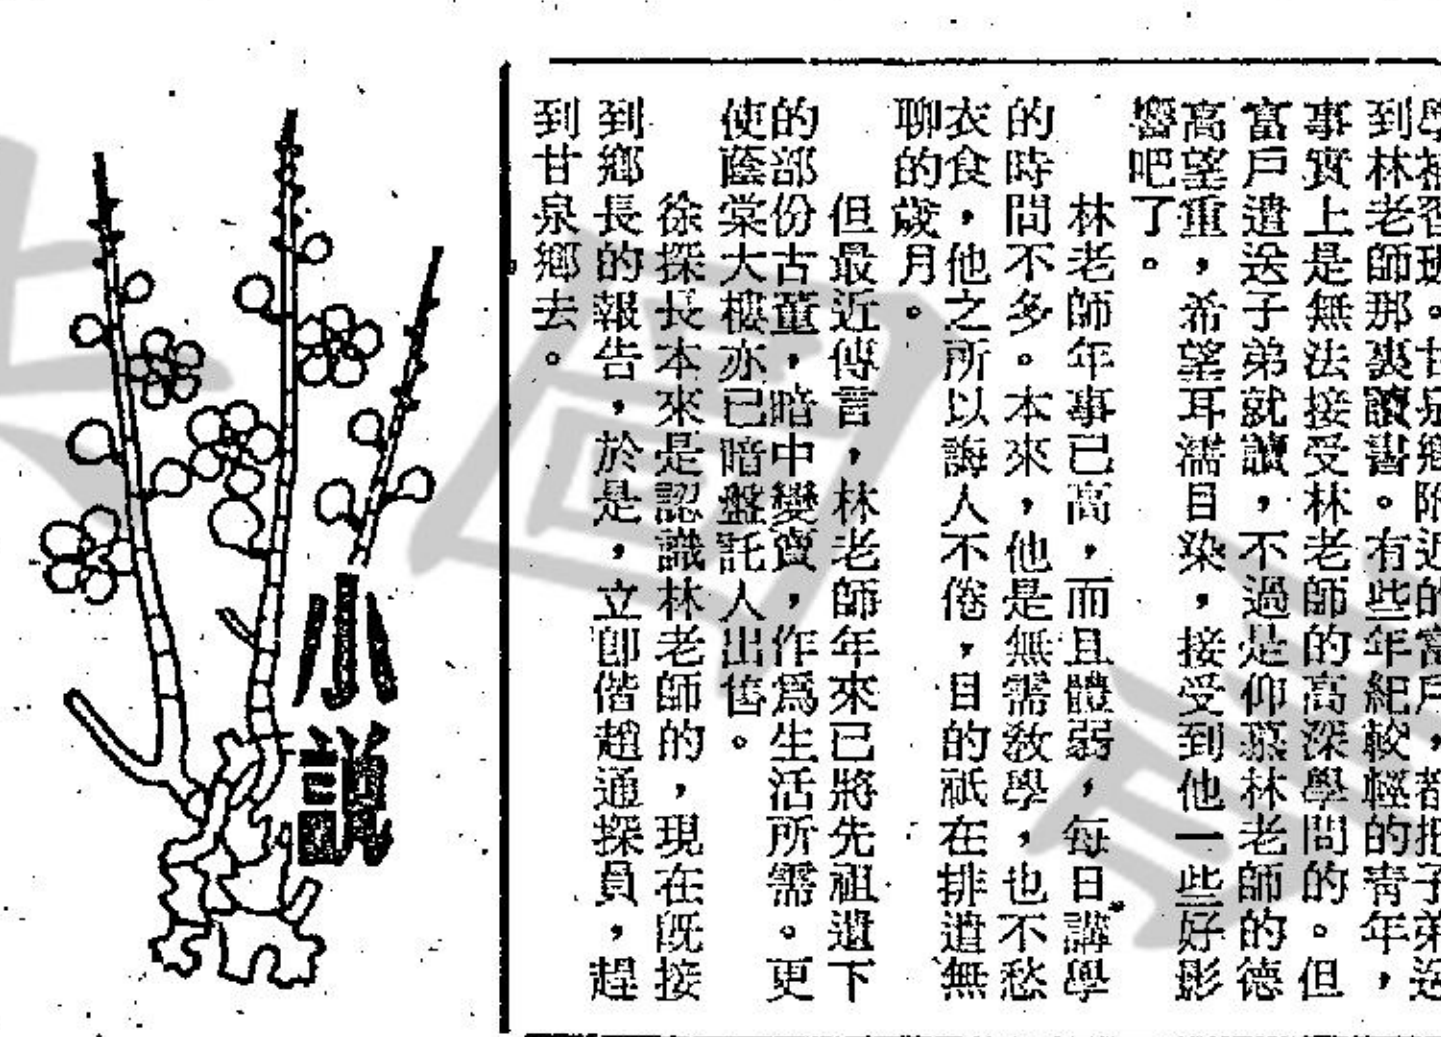 學補習班。甘泉鄉附近的富戶,都把子弟送
到林老師那裏讀書。有些年紀較輕的青年,
事實上是無法接受林老師的高深學問的。但
富戶遣送子弟就讀,不過是仰慕林老師的德
高望重,希望耳濡目染,接受到他一些好影
響吧了。
林老師年事已高,而且體弱,每日講學
的時間不多。本來,他是無需教學,也不愁
衣食,他之所以誨人不倦,目的祇在排遣無
聊的歲月。
但最近傳言,林老師年來已將先祖遺下
的部份古董,暗中變賣,作爲生活所需。更
使蔭棠大樓亦已暗盤託人出售。
徐探長本來是認識林老師的,現在旣接
到鄉長的報告,於是,立即偕趙通探員,趕
到甘泉鄉去。
小說